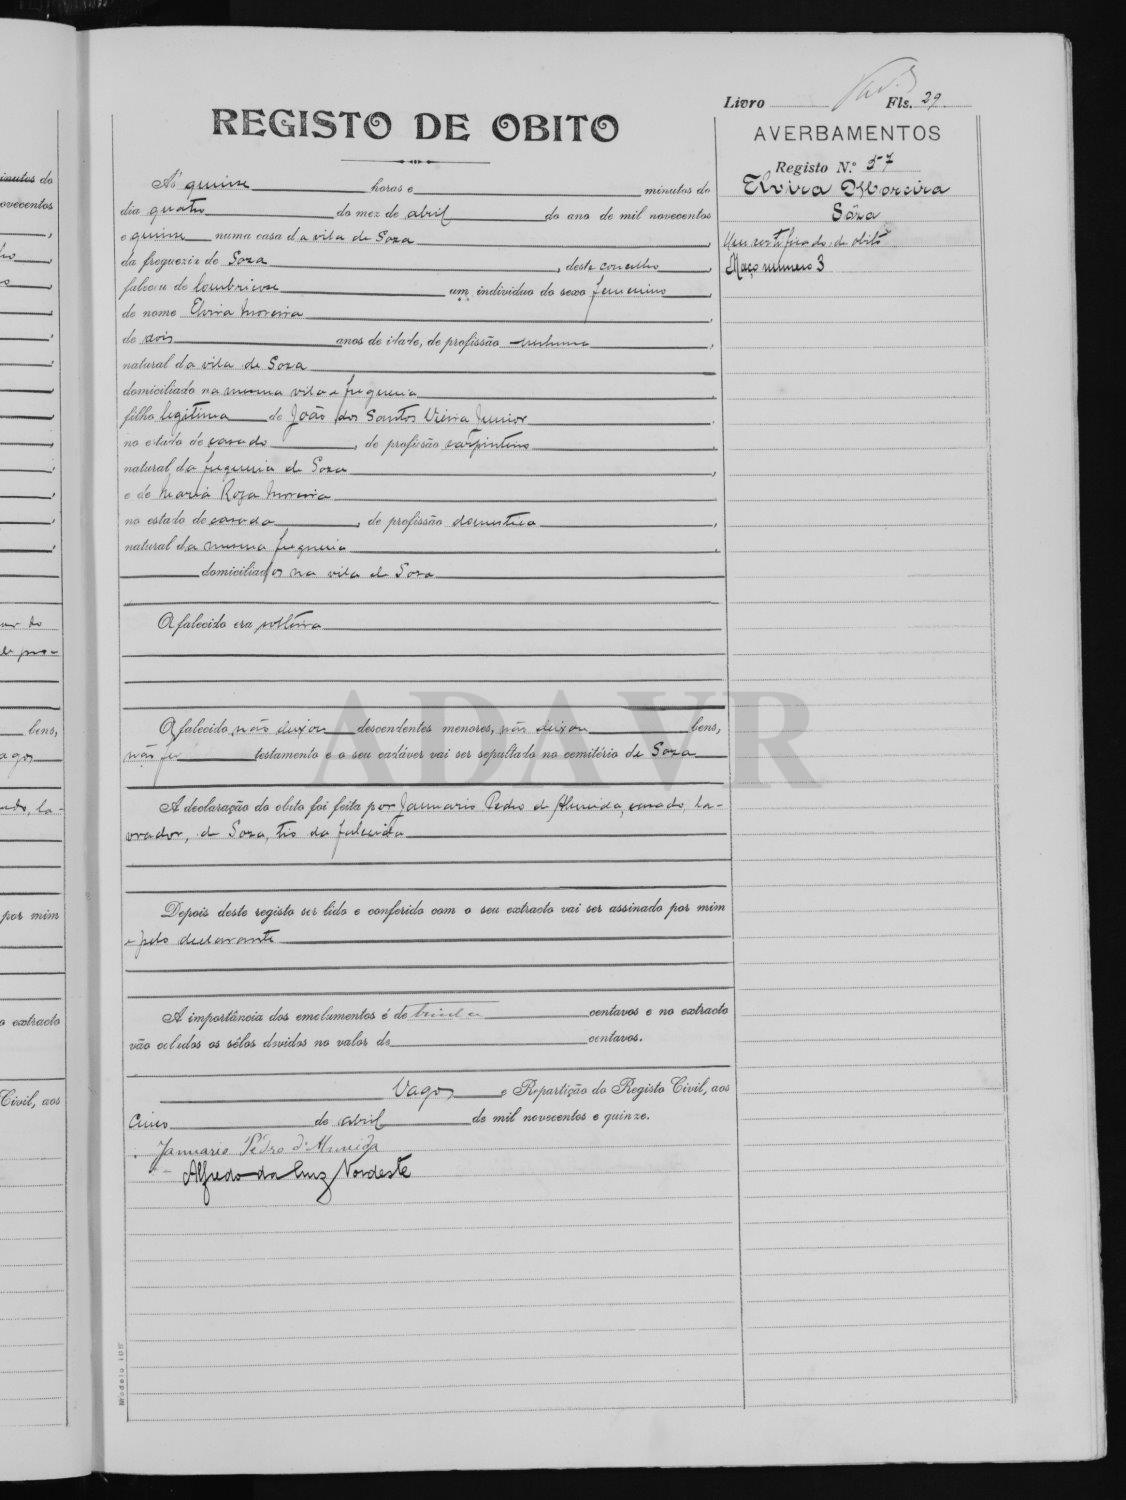 Livro Fls. 29.
REGISTO DE OBITO
AVERBAMENTOS
Registo N.º 57
Elvira Moreira
Sôza
Um certificado de obito
Maço numero 3
Ás quinse horas e minutos do
dia quatro do mez de abril do ano de mil novecentos
e quinse numa casa da vila de Soza,
da freguezia de Soza, deste concelho,
faleceu de lombricose um individuo do sexo femenino,
de nome Elvira Moreira,
de dois anos de idade, de profissão nenhuma,
natural da vila de Soza
domiciliado na mesma vila e freguesia,
filho legitima de João dos Santos Vieira Junior,
no estado de casado, de profissão carpinteiro,
natural da freguesia de Soza,
e de Maria Roza Moreira
no estado de casada, de profissão domestica,
natural da mesma freguesia,
domiciliados na vila de Soza
O falecido era solteira
O falecido não deixou descendentes menores, não deixou bens,
não fez testamento e o seu cadáver vai ser sepultado no cemitério de Soza
A declaração do obito foi feita por Januario Pedro de Almeida, casado, la-
vrador, de Soza, tio da falecida
Depois deste registo ser lido e conferido com o seu extracto vai ser assinado por mim
e pelo declarante
A importância dos emolumentos é de trinta centavos e no extracto
vão colados os sêlos dividos no valor de centavos.
Vagos e Repartição do Registo Civil, aos
cinco de abril de mil novecentos e quinze.
Januario Pedro d'Almeida
Alfredo da Luz Nordeste
Modelo 105
ADAVR